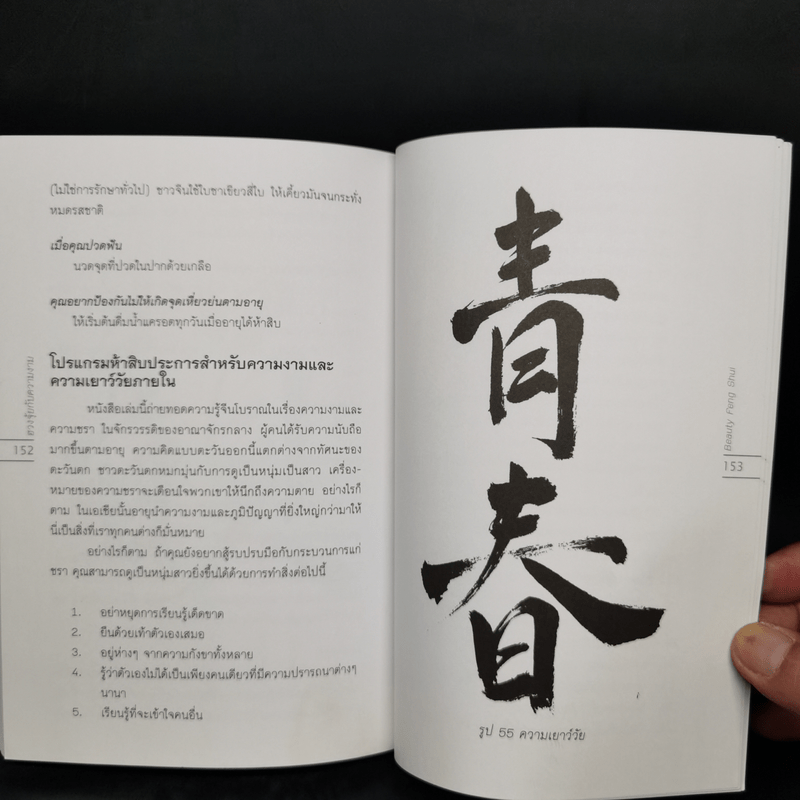 (ไม่ใช่การรักษาทั่วไป) ชาวจีนใช้ใบชาเขียวสี่ใบ ให้เคี้ยวมันจนกระทั่ง
หมดรสชาติ
เมื่อคุณปวดฟัน
นวดจุดที่ปวดในปากด้วยเกลือ
คุณอยากป้องกันไม่ให้เกิดจุดเหี่ยวย่นตามอายุ
ให้เริ่มต้นดื่มน้ำแครอตทุกวันเมื่ออายุได้ห้าสิบ
โปรแกรมห้าสิบประการสำหรับความงามและ
ความเยาว์วัยภายใน
หนังสือเล่มนี้ถ่ายทอดความรู้จีนโบราณในเรื่องความงามและ
ความชรา ในจักรวรรดิของอาณาจักรกลาง ผู้คนได้รับความนับถือ
มากขึ้นตามอายุ ความคิดแบบตะวันออกนี้แตกต่างจากทัศนะของ
ตะวันตก ชาวตะวันตกหมกมุ่นกับการดูเป็นหนุ่มเป็นสาว เครื่อง-
หมายของความชราจะเตือนใจพวกเขาให้นึกถึงความตาย อย่างไรก็
ตาม ในเอเชียนั้นอายุนำความงามและภูมิปัญญาที่ยิ่งใหญ่กว่ามาให้
นี่เป็นสิ่งที่เราทุกคนต่างก็มั่นหมาย
อย่างไรก็ตาม ถ้าคุณยังอยากสู้รบปรบมือกับกระบวนการแก่
ชรา คุณสามารถดูเป็นหนุ่มสาวยิ่งขึ้นได้ด้วยการทำสิ่งต่อไปนี้
1. อย่าหยุดการเรียนรู้เด็ดขาด
2. ยืนด้วยเท้าตัวเองเสมอ
3. อยู่ห่างๆ จากความกังขาทั้งหลาย
4. รู้ว่าตัวเองไม่ได้เป็นเพียงคนเดียวที่มีความปรารถนาต่างๆ
นานา
5. เรียนรู้ที่จะเข้าใจคนอื่น
ฮวงจุ้ยกับความงาม
152
青
春
รูป 55 ความเยาว์วัย
Beauty Feng Shui
153